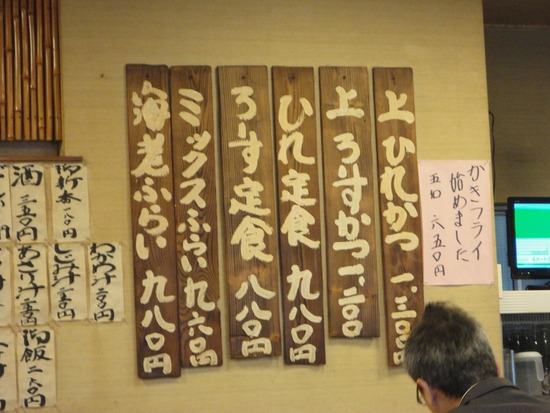 かきフライ
始めました
五ロ 六五〇円
上ひれかつ 一、三〇〇
上ろーすかつ 一、二〇〇
ひれ定食 九八〇円
ろーす定食 八八〇円
ミックスふらい 九六〇円
海老ふらい 九八〇円
わかめ汁
しじみ汁
御新香 一八〇円
酒 三五〇円
御飯 二八〇円